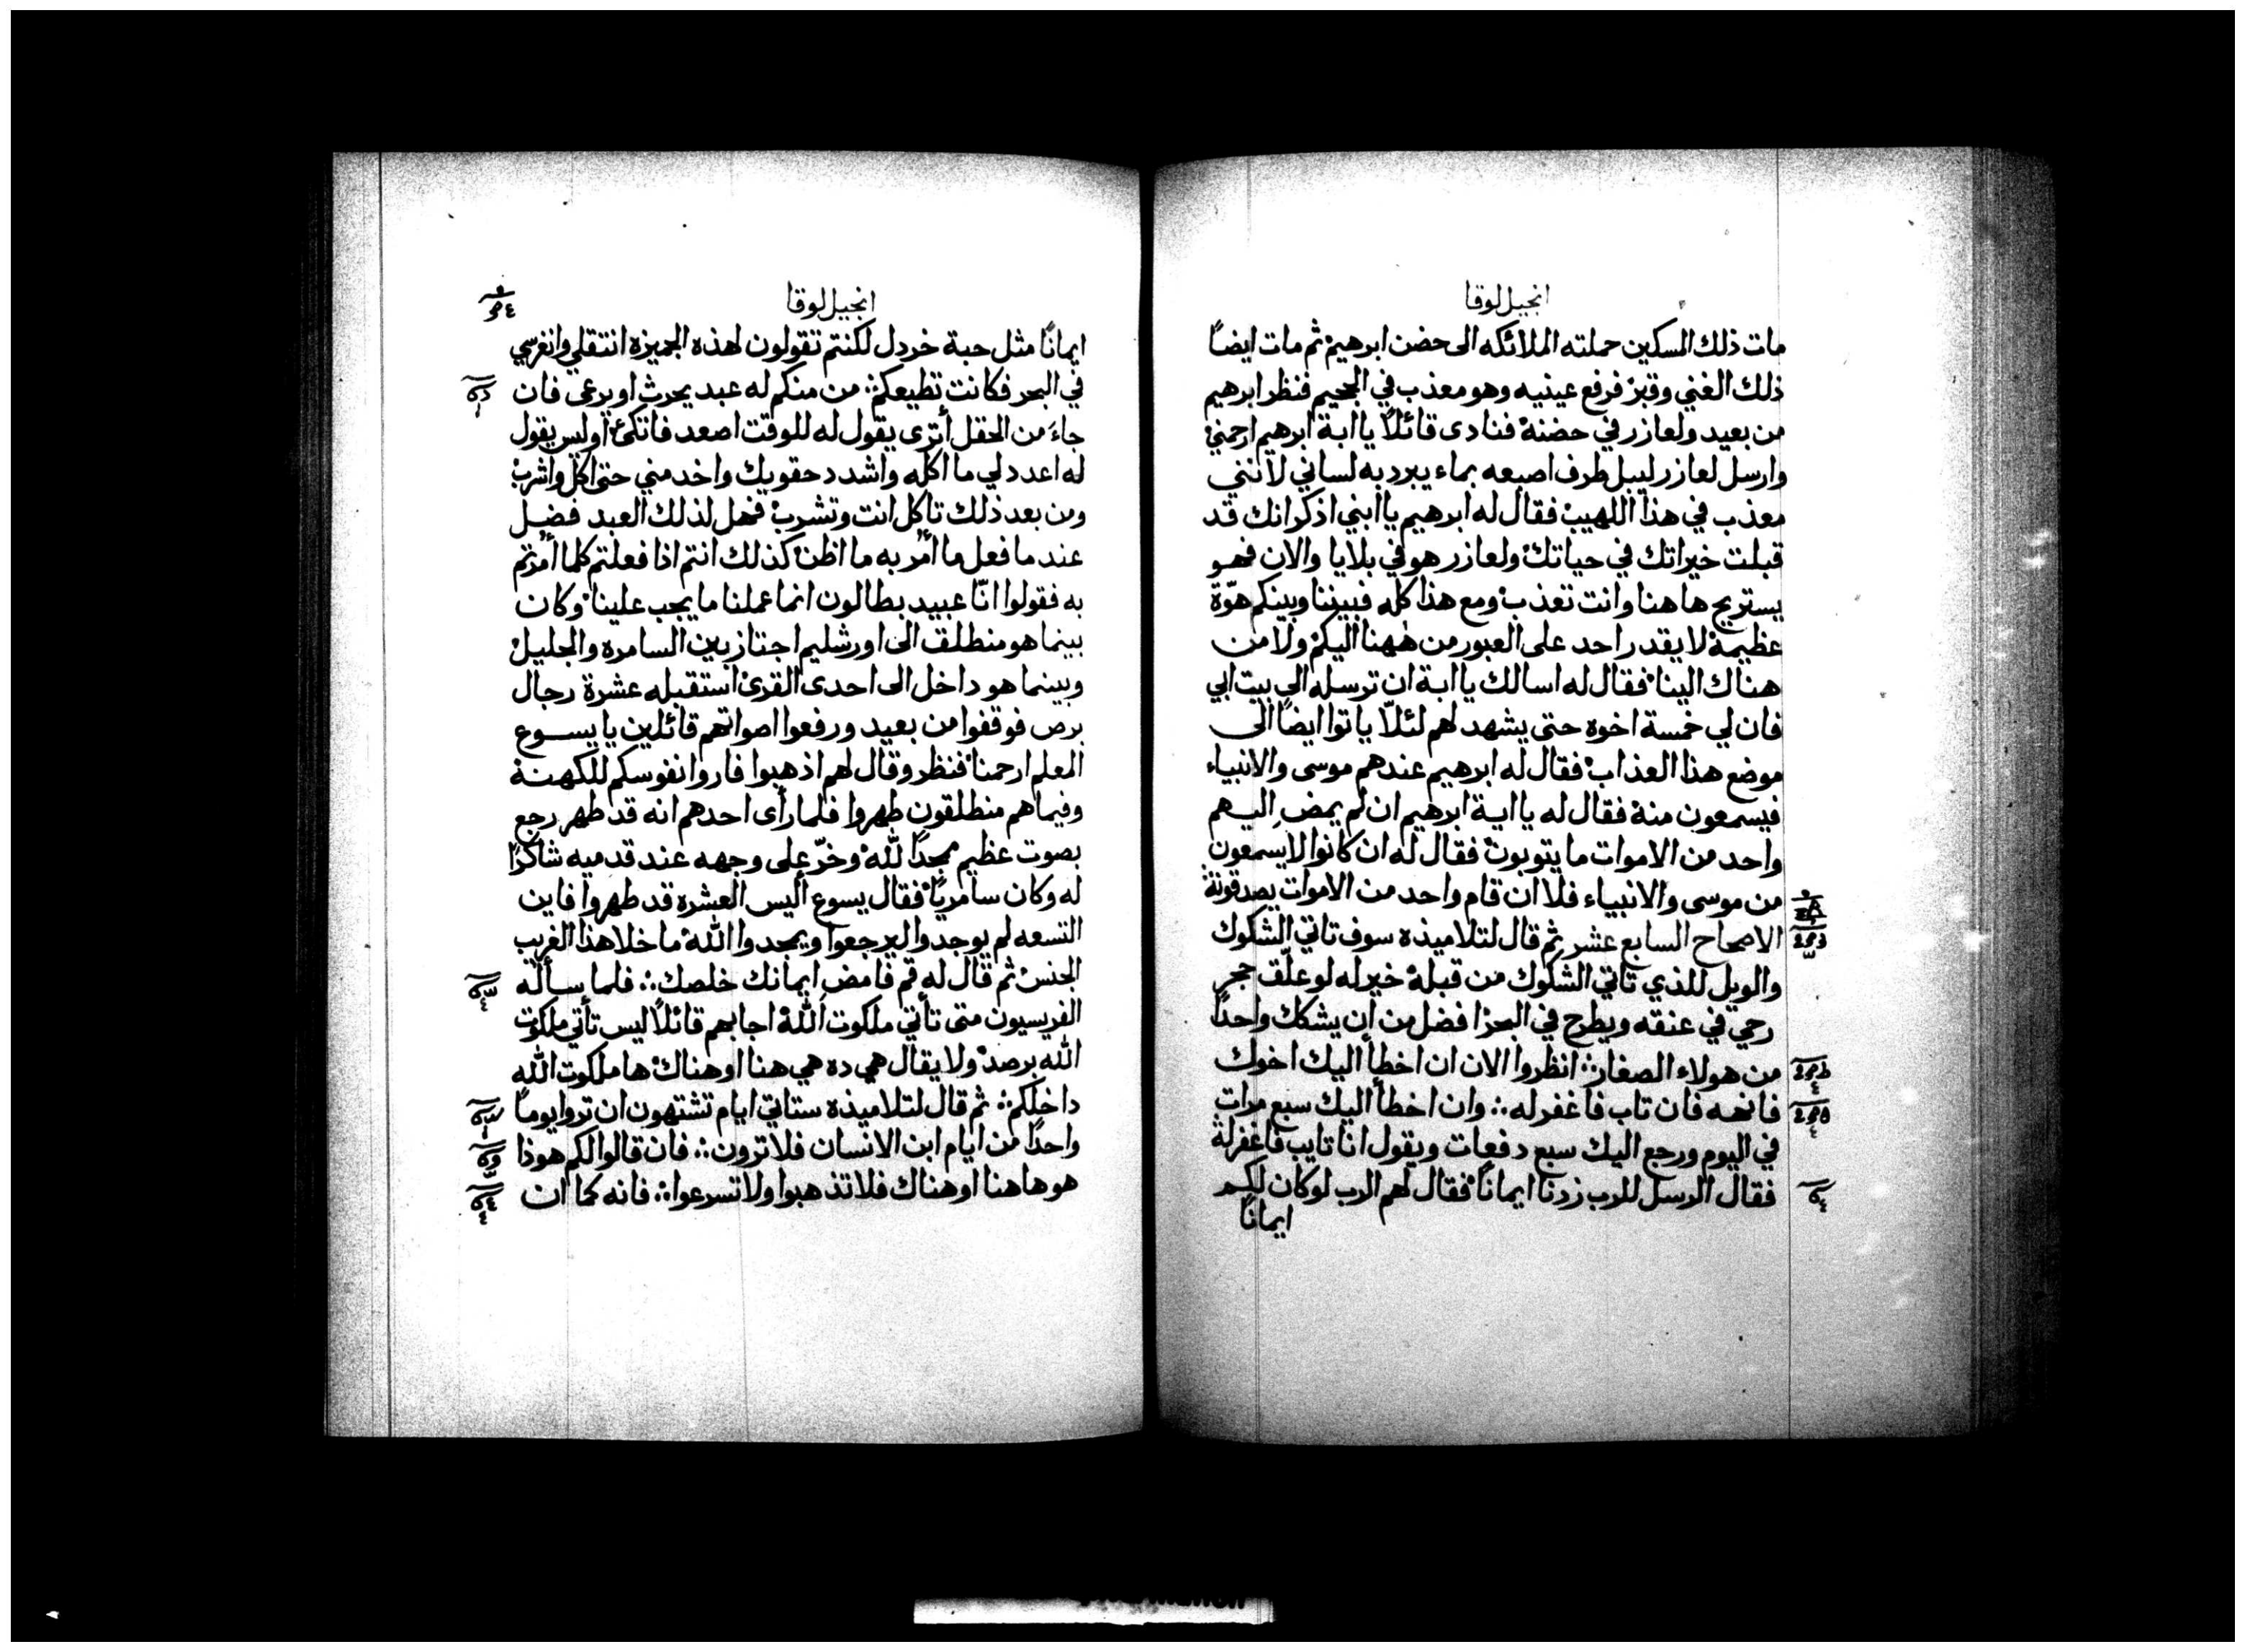 انجيل لوقا
مات ذلك المسكين حملته الملائكه الى حضن ابرهيم ثم مات ايضاً
ذلك الغني وقبر فرفع عينيه وهو معذب في الجحيم فنظر ابرهيم
من بعيد ولعازر في حضنه فنادى قائلاً يا ابة ابرهيم ارحمني
وارسل لعازر ليبل طرف اصبعه بماء يبرد به لساني لأنني
معذب في هذا اللهيب فقال له ابرهيم يا ابني اذكر انك قد
قبلت خيراتك في حياتك ولعازر هو في بلايا والان فهو
يستريح هاهنا وانت تعذب ومع هذا كله فبيننا وبينكم هوّة
عظيمة لا يقدر احد على العبور من ههنا اليكم ولا من
هناك الينا فقال له اسالك يا ابة ان ترسله الى بيت ابي
فان لي خمسة اخوه حتى يشهد لهم لئلّا ياتوا ايضاً الى
موضع هذا العذاب فقال له ابرهيم عندهم موسى والانبياء
فيسمعون منه فقال له يا ابة ابرهيم ان لم يمضِ اليهم
واحد من الاموات ما يتوبون فقال له ان كانوا لا يسمعون
من موسى والانبياء فلا ان قام واحد من الاموات يصدقونه
الاصحاح السابع عشر ثم قال لتلاميذه سوف تاتي الشكوك
والويل للذي تاتي الشكوك من قبله خير له لو علّق حجر
رحي في عنقه ويطرح في البحر افضل من ان يشكك واحداً
من هولاء الصغار ؞ انظروا الان ان اخطأ اليك اخوك
فانهه فان تاب فاغفر له ؞ وان اخطأ اليك سبع مرات
في اليوم ورجع اليك سبع دفعات ويقول انا تايب فاغفر له
فقال الرسل للرب زدنا ايماناً فقال لهم الرب لو كان لكم
ايماناً
انجيل لوقا
ايماناً مثل حبة خردل لكنتم تقولون لهذه الجميزه انتقلي وانغرسي
في البحر فكانت تطيعكم ؞ من منكم له عبد يحرث او يرعى فان
جاءَ من الحقل أترى يقول له للوقت اصعد فاتكئ او ليس يقول
له اعدد لي ما اكله واشدد حقويك واخدمني حتى اكل واشرب
ومن بعد ذلك تاكل انت وتشرب فهل لذلك العبد فضل
عندما فعل ما أمر به ما اظن كذلك انتم اذا فعلتم كلما أمرتم
به فقولوا انّا عبيد بطالون انما عملنا ما يجب علينا وكان
بينما هو منطلق الى اورشليم اجتاز بين السامره والجليل
وبينما هو داخل الى احدى القرى استقبله عشرة رجال
برص فوقفوا من بعيد ورفعوا اصواتهم قائلين يا يسوع
المعلم ارحمنا فنظر وقال لهم اذهبوا فاروا نفوسكم للكهنة
وفيما هم منطلقون طهروا فلما رأى احدهم انه قد طهر رجع
بصوت عظيم ممجداً لله وخرّ على وجهه عند قدميه شاكراً
له وكان سامريّاً فقال يسوع أليس العشره قد طهروا فاين
التسعه لم يوجدوا ليرجعوا ويمجدوا الله ما خلا هذا الغريب
الجنس ثم قال له قم فامضِ ايمانك خلصك ؞ فلما سألة
الفريسيون متى تأتي ملكوت الله اجابهم قائلاً ليس تأتي ملكوت
الله برصد ولا يقال هي ده هي هنا او هناك ها ملكوت الله
داخلكم ؞ ثم قال لتلاميذه ستاتي ايام تشتهون ان تروا يوماً
واحداً من ايام ابن الانسان فلا ترون ؞ فان قالوا لكم هوذا
هو هاهنا او هناك فلا تذهبوا ولا تسرعوا ؞ فانه كما ان